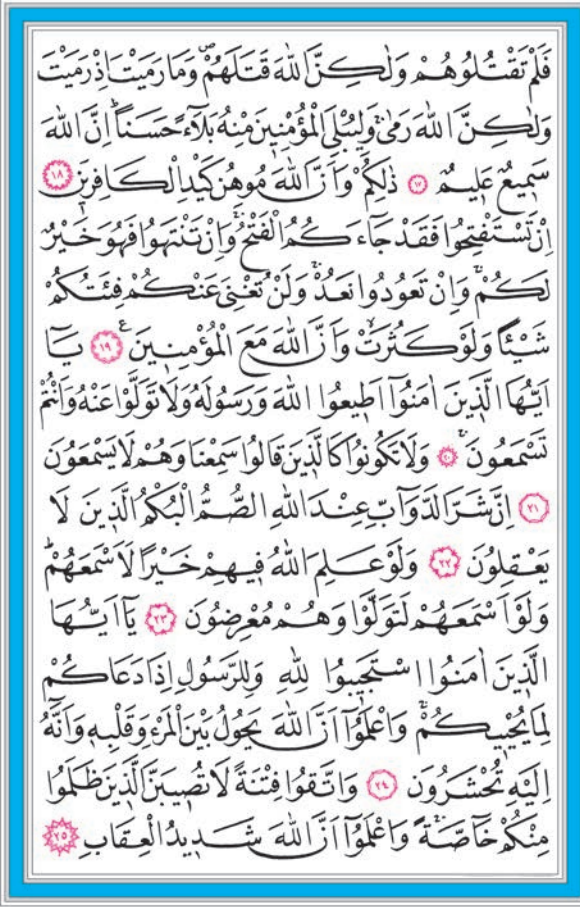 فَلَمْ تَقْتُلُوهُمْ وَلٰكِنَّ اللّٰهَ قَتَلَهُمْۖ وَمَا رَمَيْتَ اِذْ رَمَيْتَ
وَلٰكِنَّ اللّٰهَ رَمٰىۚ وَلِيُبْلِيَ الْمُؤْمِن۪ينَ مِنْهُ بَلَٓاءً حَسَناًۜ اِنَّ اللّٰهَ
سَم۪يعٌ عَل۪يمٌ ﴿١٧﴾ ذٰلِكُمْ وَاَنَّ اللّٰهَ مُوهِنُ كَيْدِ الْكَافِر۪ينَ ﴿١٨﴾
اِنْ تَسْتَفْتِحُوا فَقَدْ جَٓاءَكُمُ الْفَتْحُۚ وَاِنْ تَنْتَهُوا فَهُوَ خَيْرٌ
لَكُمْۚ وَاِنْ تَعُودُوا نَعُدْۚ وَلَنْ تُغْنِيَ عَنْكُمْ فِئَتُكُمْ
شَيْـٔاً وَلَوْ كَثُرَتْۙ وَاَنَّ اللّٰهَ مَعَ الْمُؤْمِن۪ينَ۟ ﴿١٩﴾ يَٓا
اَيُّهَا الَّذ۪ينَ اٰمَنُٓوا اَط۪يعُوا اللّٰهَ وَرَسُولَهُ وَلَا تَوَلَّوْا عَنْهُ وَاَنْتُمْ
تَسْمَعُونَۚ ﴿٢٠﴾ وَلَا تَكُونُوا كَالَّذ۪ينَ قَالُوا سَمِعْنَا وَهُمْ لَا يَسْمَعُونَ
﴿٢١﴾ اِنَّ شَرَّ الدَّوَٓابِّ عِنْدَ اللّٰهِ الصُّمُّ الْبُكْمُ الَّذ۪ينَ لَا
يَعْقِلُونَ ﴿٢٢﴾ وَلَوْ عَلِمَ اللّٰهُ ف۪يهِمْ خَيْراً لَاَسْمَعَهُمْۜ
وَلَوْ اَسْمَعَهُمْ لَتَوَلَّوْا وَهُمْ مُعْرِضُونَ ﴿٢٣﴾ يَٓا اَيُّهَا
الَّذ۪ينَ اٰمَنُوا اسْتَج۪يبُوا لِلّٰهِ وَلِلرَّسُولِ اِذَا دَعَاكُمْ
لِمَا يُحْي۪يكُمْۚ وَاعْلَمُٓوا اَنَّ اللّٰهَ يَحُولُ بَيْنَ الْمَرْءِ وَقَلْبِه۪ وَاَنَّهُٓ
اِلَيْهِ تُحْشَرُونَ ﴿٢٤﴾ وَاتَّقُوا فِتْنَةً لَا تُص۪يبَنَّ الَّذ۪ينَ ظَلَمُوا
مِنْكُمْ خَٓاصَّةًۚ وَاعْلَمُٓوا اَنَّ اللّٰهَ شَد۪يدُ الْعِقَابِ ﴿٢٥﴾